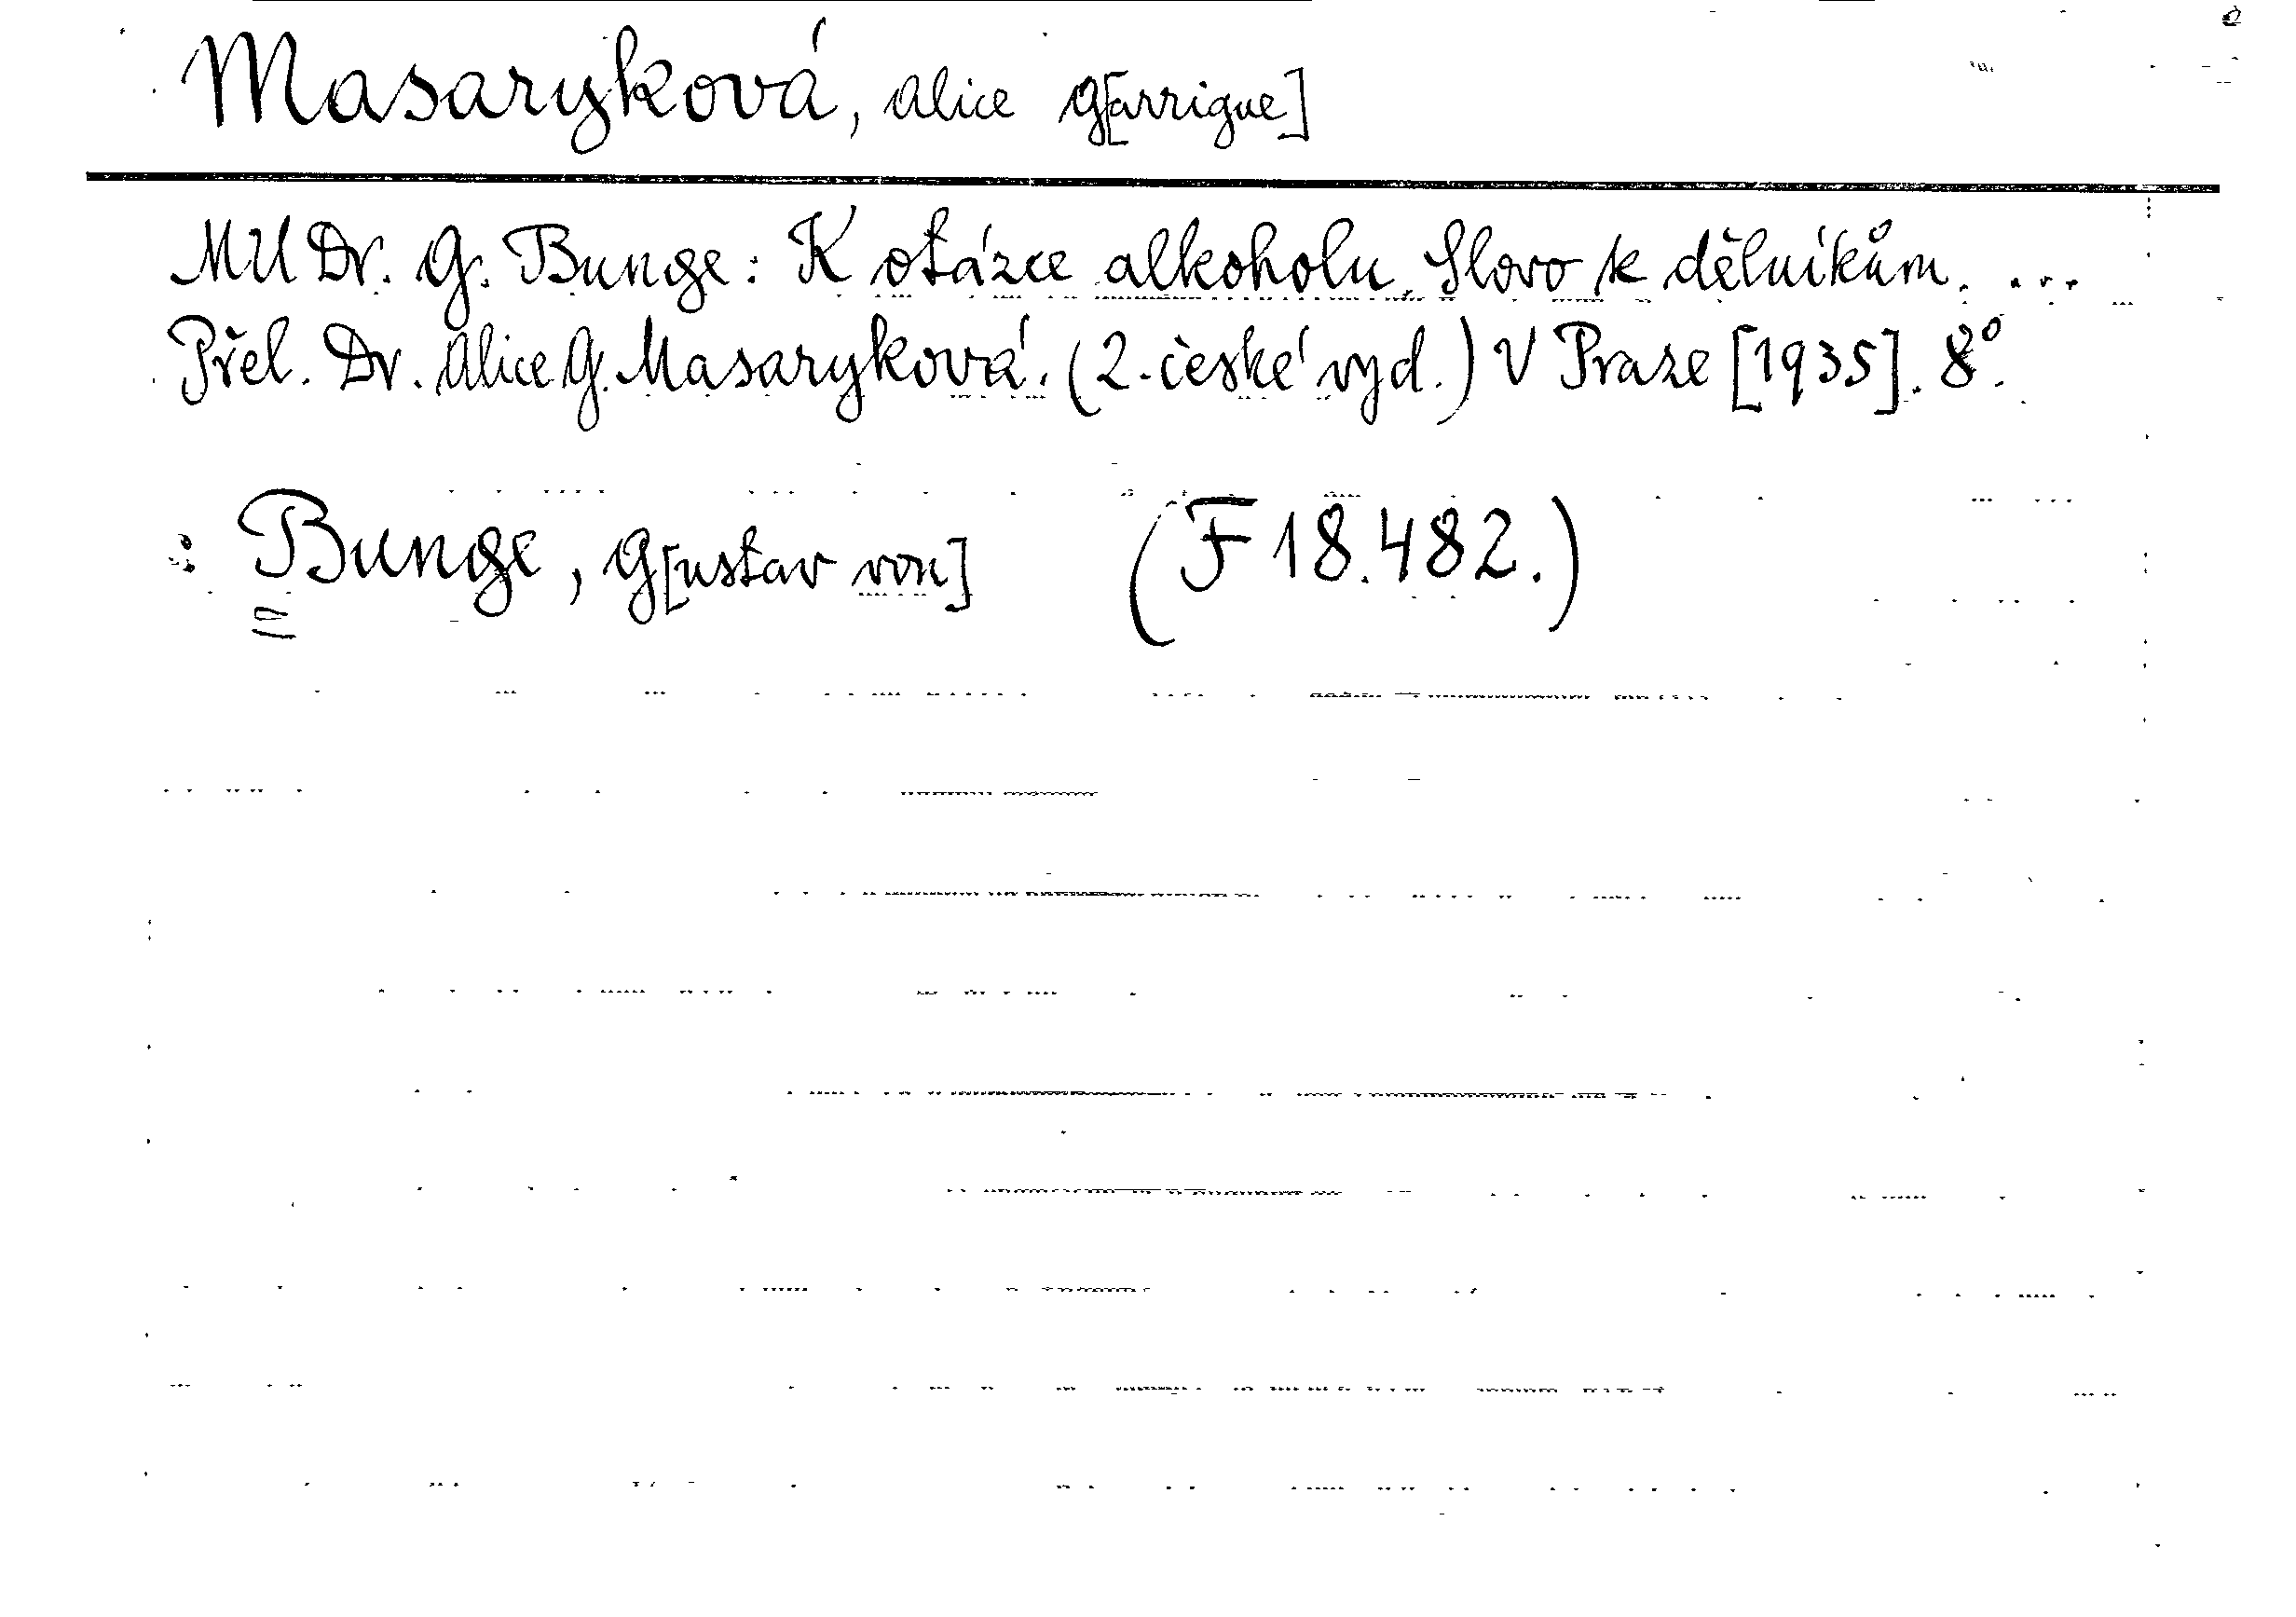 Masaryková, Alice G[arrigue]
MUDr. G. Bunge: K otázce alkoholu. Slovo k dělníkům. ...
Přel. Dr. Alice G. Masaryková. (2. české vyd.) V Praze [1935]. 8°.
: Bunge, G[ustav von] (F 18.482.)